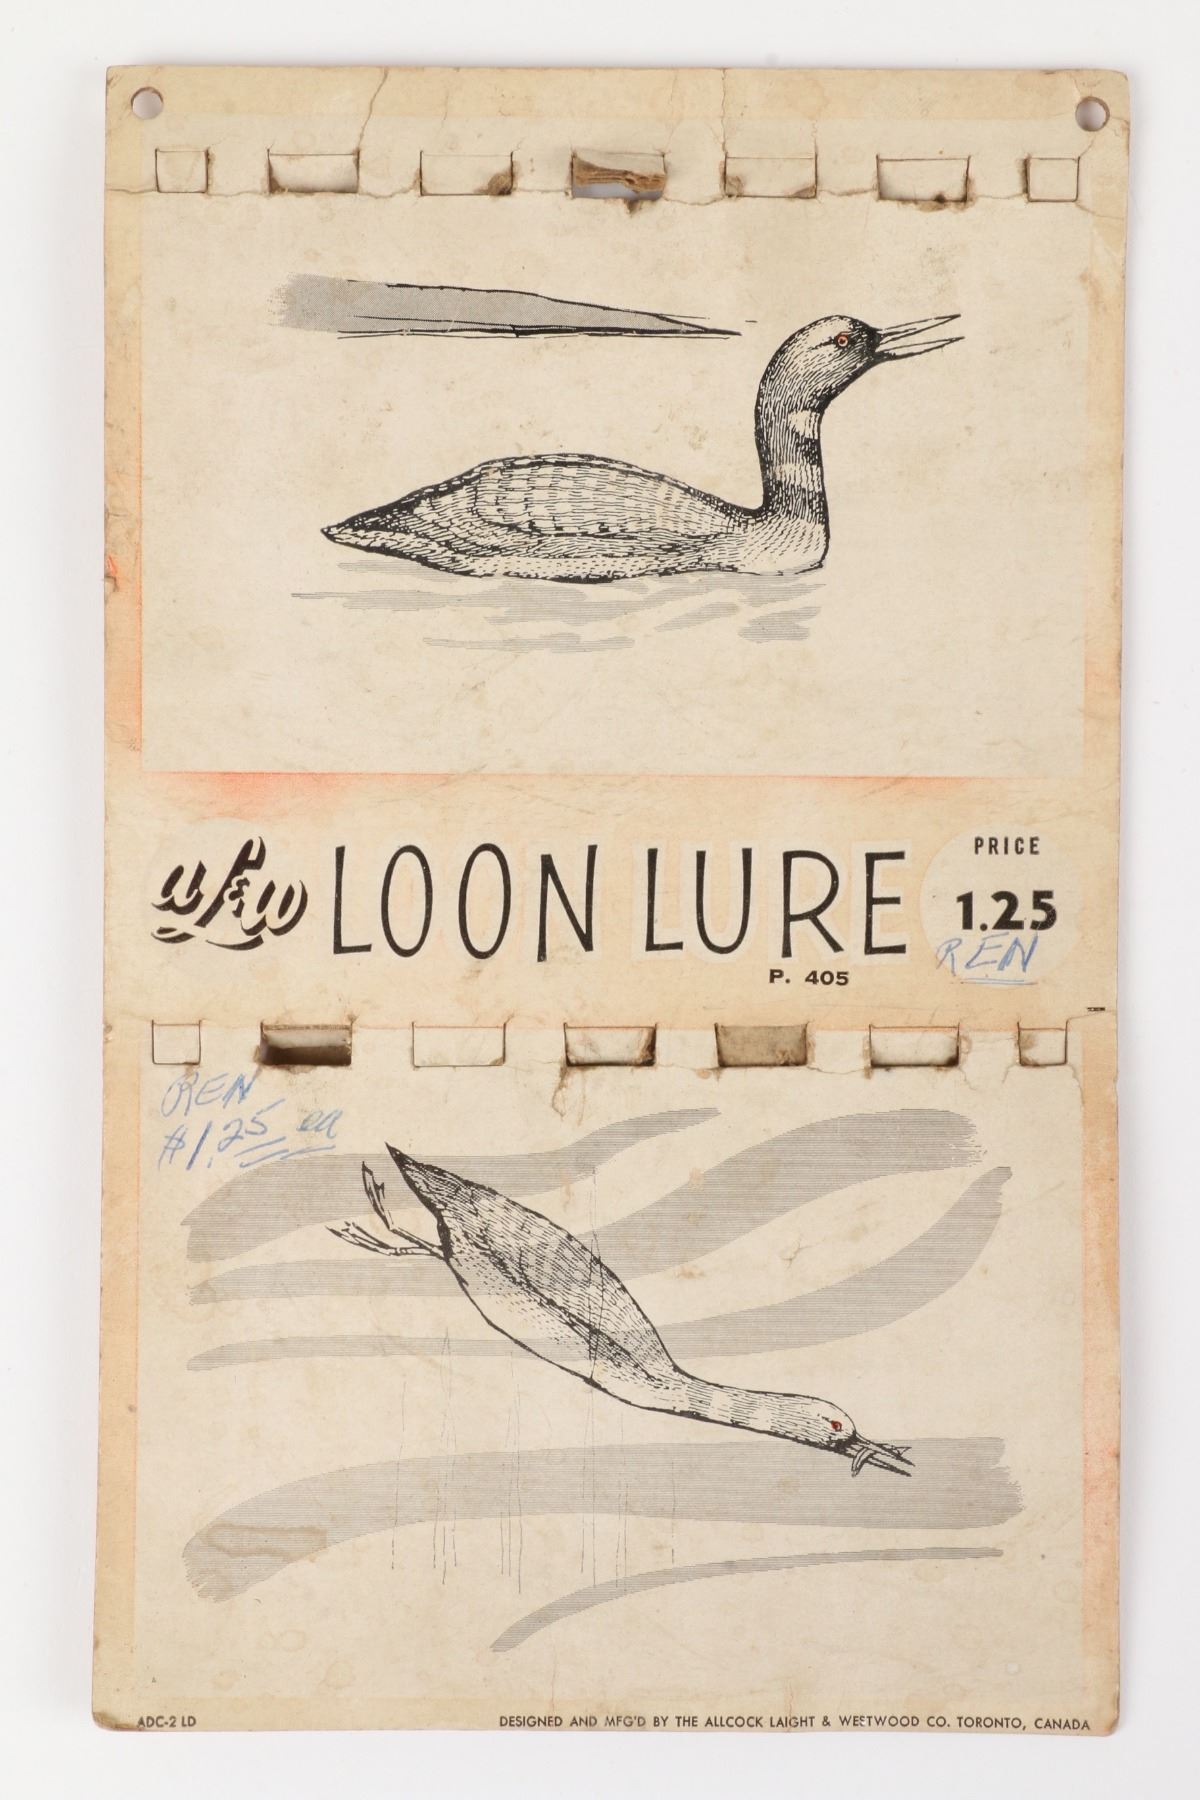 al&w LOON LURE
PRICE
1.25
REN
P. 405
REN
$1.25 ea
ADC-2 LD
DESIGNED AND MFG'D BY THE ALLCOCK LAIGHT & WESTWOOD CO. TORONTO, CANADA